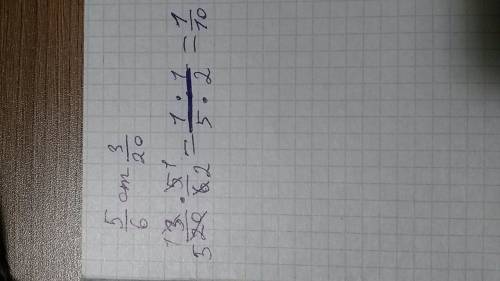 5/6 от 3/20
3/20 · 5/6 = 1 · 1 / 5 · 2 = 1/10